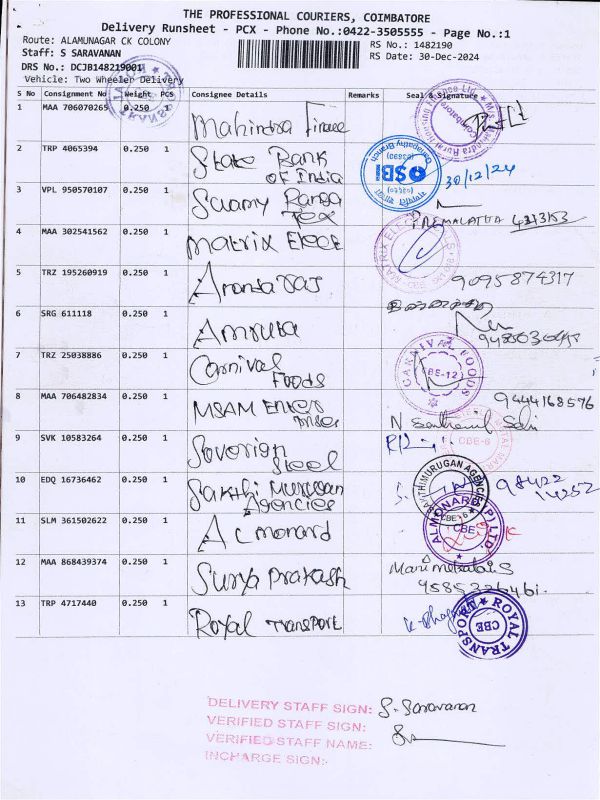 THE PROFESSIONAL COURIERS, COIMBATORE
Delivery Runsheet - PCX - Phone No.:0422-3505555 - Page No.:1
Route: ALAMUNAGAR CK COLONY
RS No.: 1482190
Staff: S SARAVANAN
RS Date: 30-Dec-2024
DRS No.: DCJB148219001
Vehicle: Two Wheeler Delivery
S No Consignment No Weight PCS Consignee Details Remarks Seal & Signature
1 MAA 706070265 0.250 Mahindra Finance
2 TRP 4065394 0.250 1 State Bank of India SBI 30/12/24
3 VPL 950570107 0.250 1 Swamy Ranga Tex PREMALATHA
4 MAA 302541562 0.250 1 Matrix Elect
5 TRZ 195260919 0.250 1 Ananda Raj 9095874317
6 SRG 611118 0.250 1 Amruta
7 TRZ 25038886 0.250 1 Carnival Foods CARNIVAL FOODS CBE-12
8 MAA 706482834 0.250 1 MSAM Enter Prises 9444168576
9 SVK 10583264 0.250 1 Soverign Steel CBE-6
10 EDQ 16736462 0.250 1 Sakthi Murugan Agencies 98422 14252
11 SLM 361502622 0.250 1 A C monard ALMONARD (P) LTD. CBE
12 MAA 868439374 0.250 1 Surya Prakash Manimekalai S
13 TRP 4717440 0.250 1 Royal Transport ROYAL TRANSPORT CBE
DELIVERY STAFF SIGN: S. Saravanan
VERIFIED STAFF SIGN:
VERIFIED STAFF NAME:
INCHARGE SIGN:-